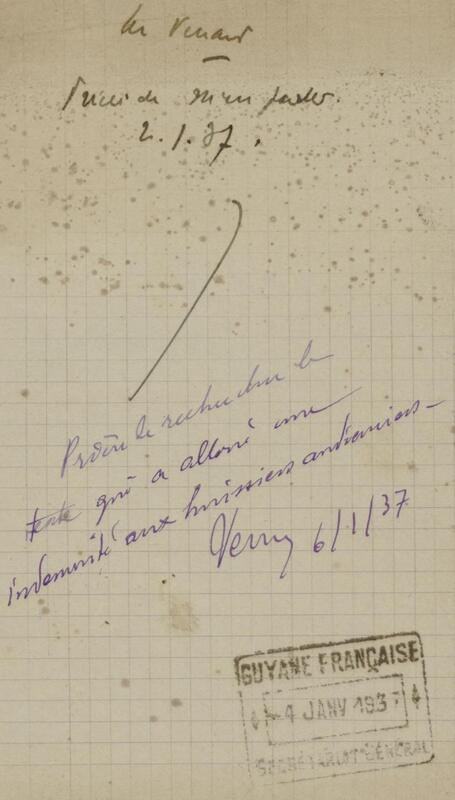 Mr Venard
Prière de m'en parler.
2.1.37.
Prière de rechercher le
texte qui a alloué une
indemnité aux huissiers audienciers-
6/1/37
GUYANE FRANÇAISE
-4 JANV 1937
SECRÉTARIAT GÉNÉRAL